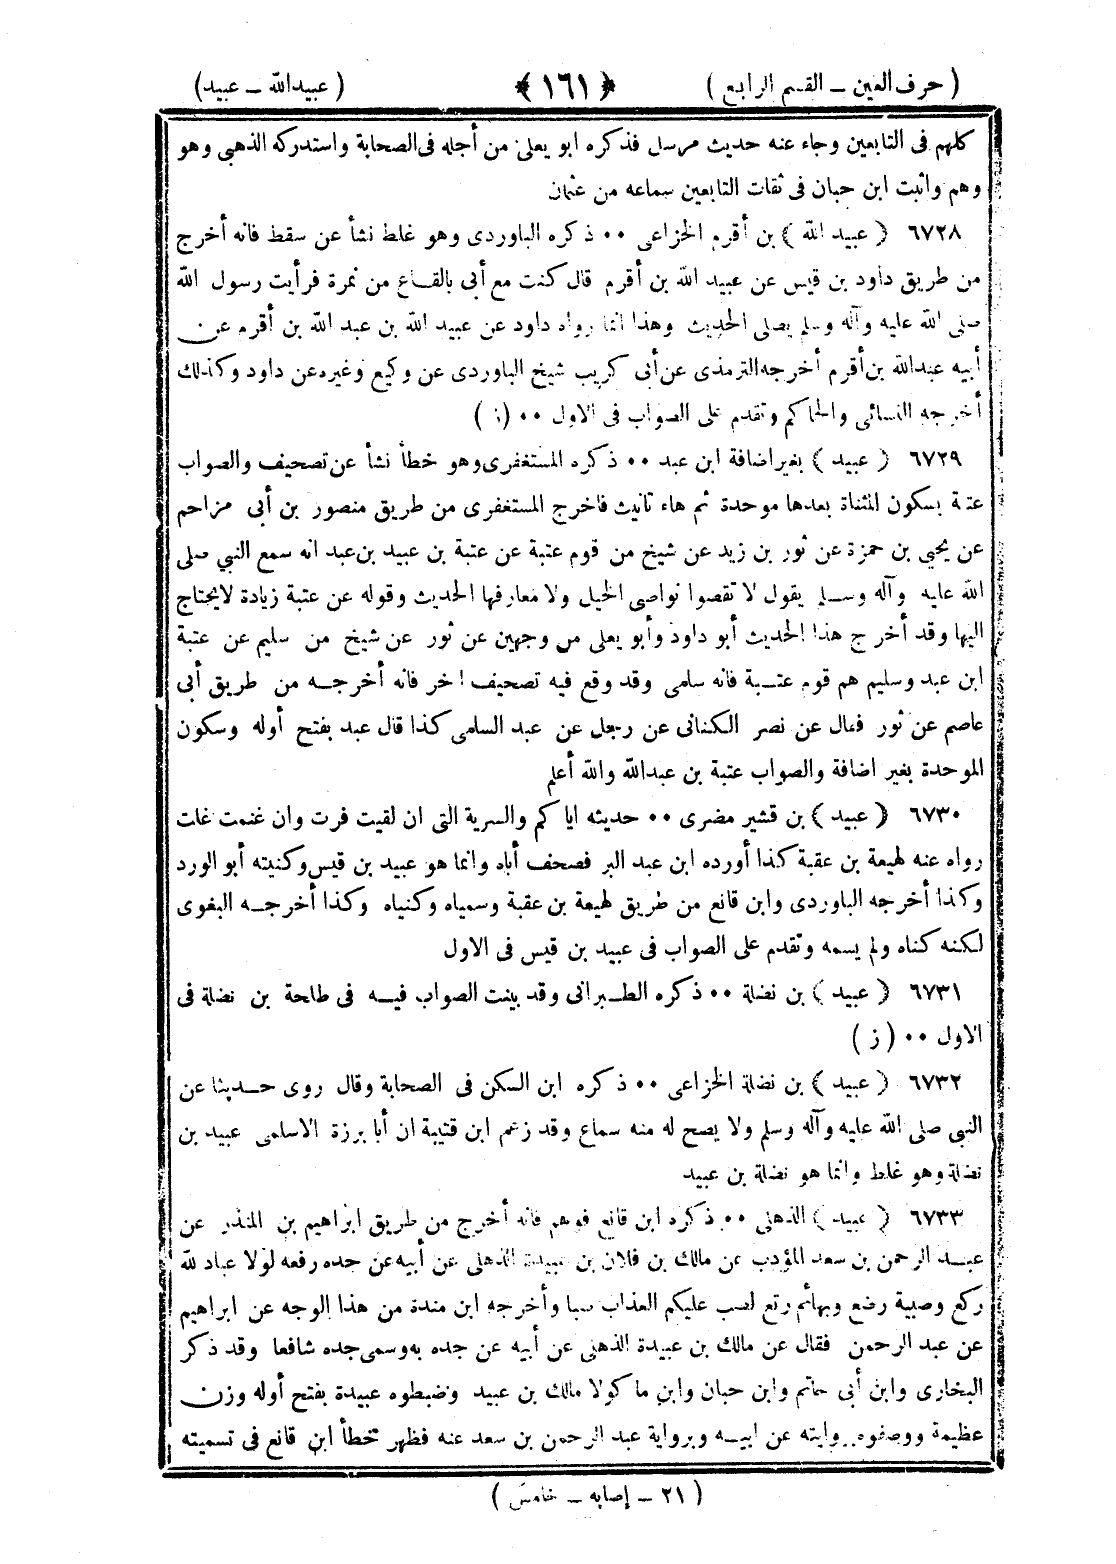 ( حرف العين ــ القسم الرابع ) ﴿ ١٦١ ﴾ ( عبيدالله ــ عبيد )
كلهم فى التابعين وجاء عنه حديث مرسل فذكره ابو يعلى من أجله فى الصحابة واستدركه الذهبى وهو
وهم واثبت ابن حبان فى ثقات التابعين سماعه من عثمان
٦٧٢٨ ﴿ عبيد الله ﴾ بن أقرم الخزاعى ٠٠ ذكره الباوردى وهو غلط نشأ عن سقط فانه أخرج
من طريق داود بن قيس عن عبيد الله بن أقرم قال كنت مع أبى بالقاع من نمرة فرأيت رسول الله
صلى الله عليه وآله وسلم يصلى الحديث وهذا انما رواه داود عن عبيد الله بن عبد الله بن أقرم عن
أبيه عبدالله بن أقرم أخرجه الترمذى عن أبى كريب شيخ الباوردى عن وكيع وغيره عن داود وكذلك
أخرجه النسائى والحاكم وتقدم على الصواب فى الاول ٠٠ ( ز )
٦٧٢٩ ﴿ عبيد ﴾ بغير اضافة ابن عبد ٠٠ ذكره المستغفرى وهو خطأ نشأ عن تصحيف والصواب
عتبة بسكون المثناة بعدها موحدة ثم هاء تانيث فاخرج المستغفرى من طريق منصور بن أبى مزاحم
عن يحيى بن حمزة عن ثور بن زيد عن شيخ من قوم عتبة عن عتبة بن عبيد بن عبد انه سمع النبي صلى
الله عليه وآله وسلم يقول لا تقصوا نواصى الخيل ولا معارفها الحديث وقوله عن عتبة زيادة لايحتاج
اليها وقد أخرج هذا الحديث أبو داود وأبو يعلى من وجهين عن ثور عن شيخ من سليم عن عتبة
ابن عبد وسليم هم قوم عتبة فانه سلمى وقد وقع فيه تصحيف اخر فانه أخرجه من طريق أبى
عاصم عن ثور فقال عن نصر الكنانى عن رجل عن عبد السلمى كذا قال عبد بفتح أوله وسكون
الموحدة بغير اضافة والصواب عتبة بن عبدالله والله أعلم
٦٧٣٠ ﴿ عبيد ﴾ بن قشير مضرى ٠٠ حديثه اياكم والسرية التى ان لقيت فرت وان غنمت غلت
رواه عنه لهيعة بن عقبة كذا أورده ابن عبد البر فصحف أباه وانما هو عبيد بن قيس وكنيته أبو الورد
وكذا أخرجه الباوردى وابن قانع من طريق لهيعة بن عقبة وسمياه وكنياه وكذا أخرجه البغوى
لكنه كناه ولم يسمه وتقدم على الصواب فى عبيد بن قيس فى الاول
٦٧٣١ ﴿ عبيد ﴾ بن نضلة ٠٠ ذكره الطبرانى وقد بينت الصواب فيه فى طلحة بن نضلة فى
الاول ٠٠ ( ز )
٦٧٣٢ ﴿ عبيد ﴾ بن نضلة الخزاعى ٠٠ ذكره ابن السكن فى الصحابة وقال روى حديثا عن
النبى صلى الله عليه وآله وسلم ولا يصح له منه سماع وقد زعم ابن قتيبة ان أبا برزة الاسلمى عبيد بن
نضلة وهو غلط وانما هو نضلة بن عبيد
٦٧٣٣ ﴿ عبيد ﴾ الذهلى ٠٠ ذكره ابن قانع فوهم فانه أخرج من طريق ابراهيم بن المنذر عن
عبد الرحمن بن سعد المؤدب عن مالك بن فلان بن عبيدة الذهلى عن أبيه عن جده رفعه لولا عباد لله
ركع وصبية رضع وبهائم رتع لصب عليكم العذاب صبا وأخرجه ابن مندة من هذا الوجه عن ابراهيم
عن عبد الرحمن فقال عن مالك بن عبيدة الذهلى عن أبيه عن جده به وسمى جده شافعا وقد ذكر
البخارى وابن أبى حاتم وابن حبان وابن ماكولا مالك بن عبيد وضبطوه عبيدة بفتح أوله وزن
عظيمة ووصفوه بروايته عن ابيه وبرواية عبد الرحمن بن سعد عنه فظهر خطأ ابن قانع فى تسميته
( ٢١ ــ إصابه ــ خامس )